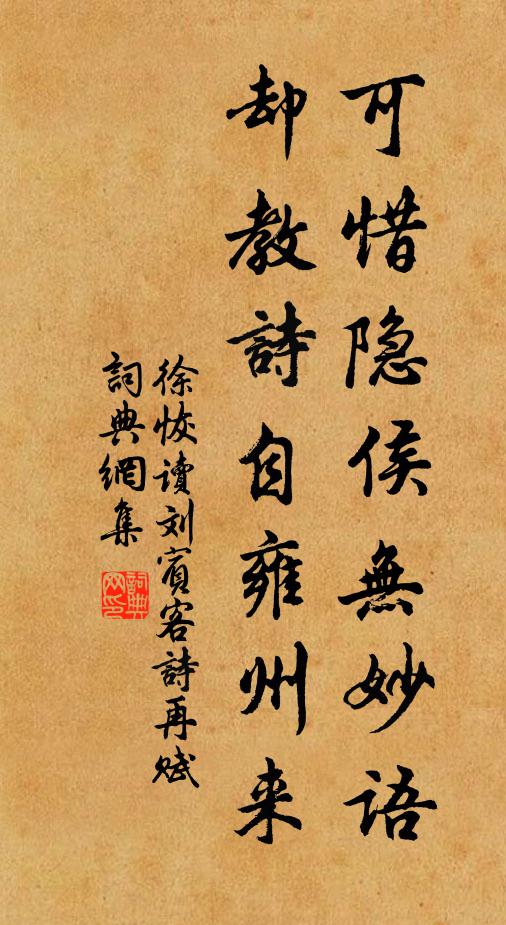 可惜隐侯無妙語
却教詩自雍州来
徐恢读刘賓客詩再赋
詞典網集
詞典网印